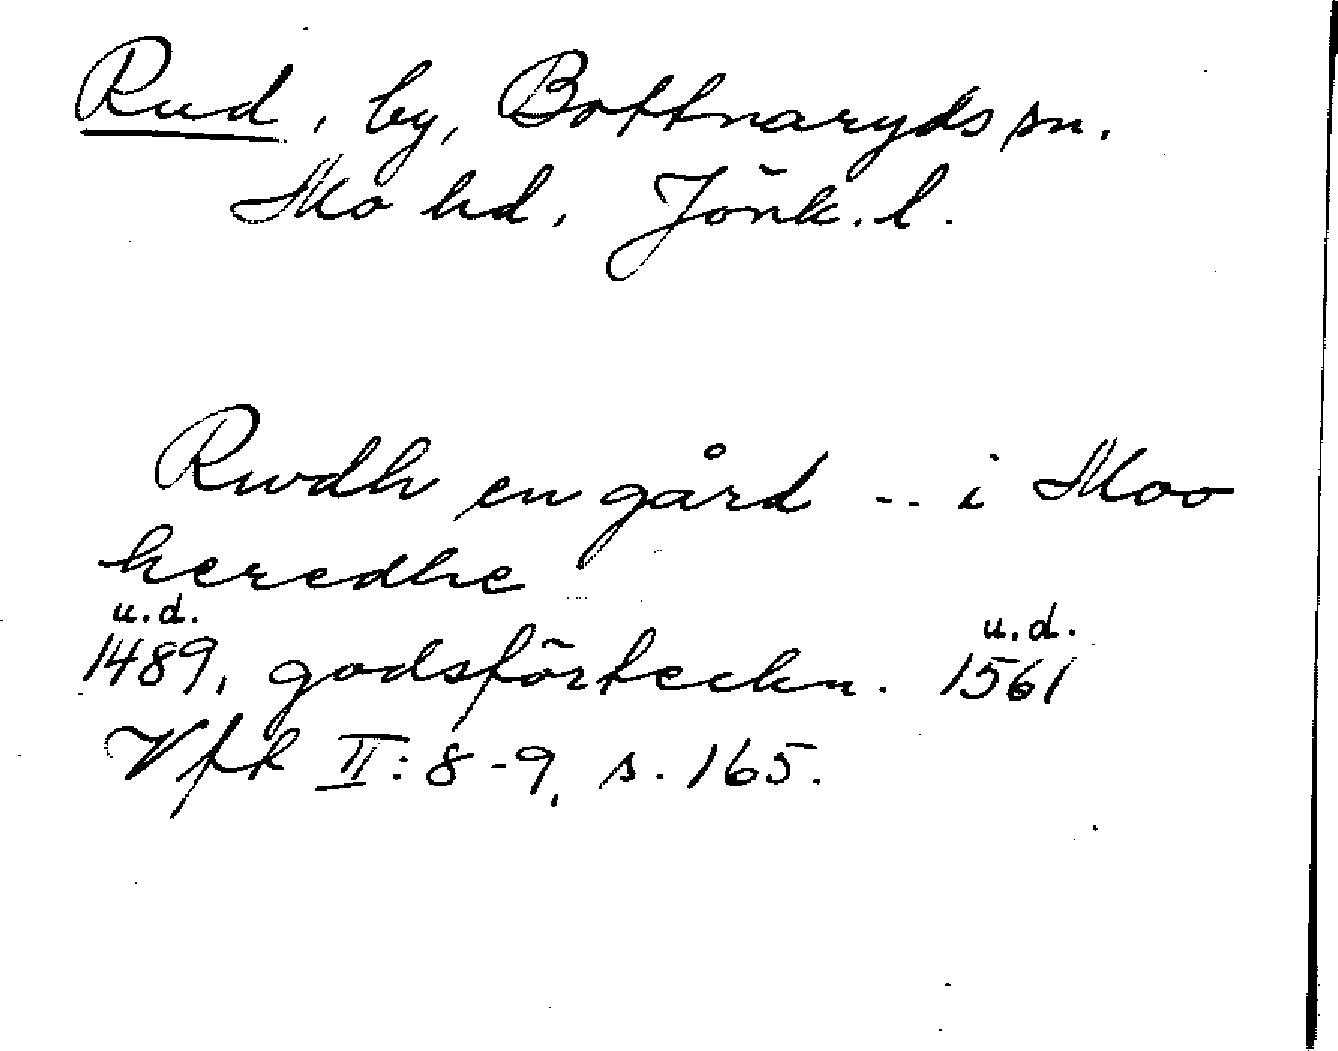 Rud, by, Bottnaryds sn.
Mo hd. Jönk. l.
Rwdh en gård -- i Moo
heredhe
u.d. u.d.
1489, godsförteckn. 1561
Vfk II: 8-9, s. 165.